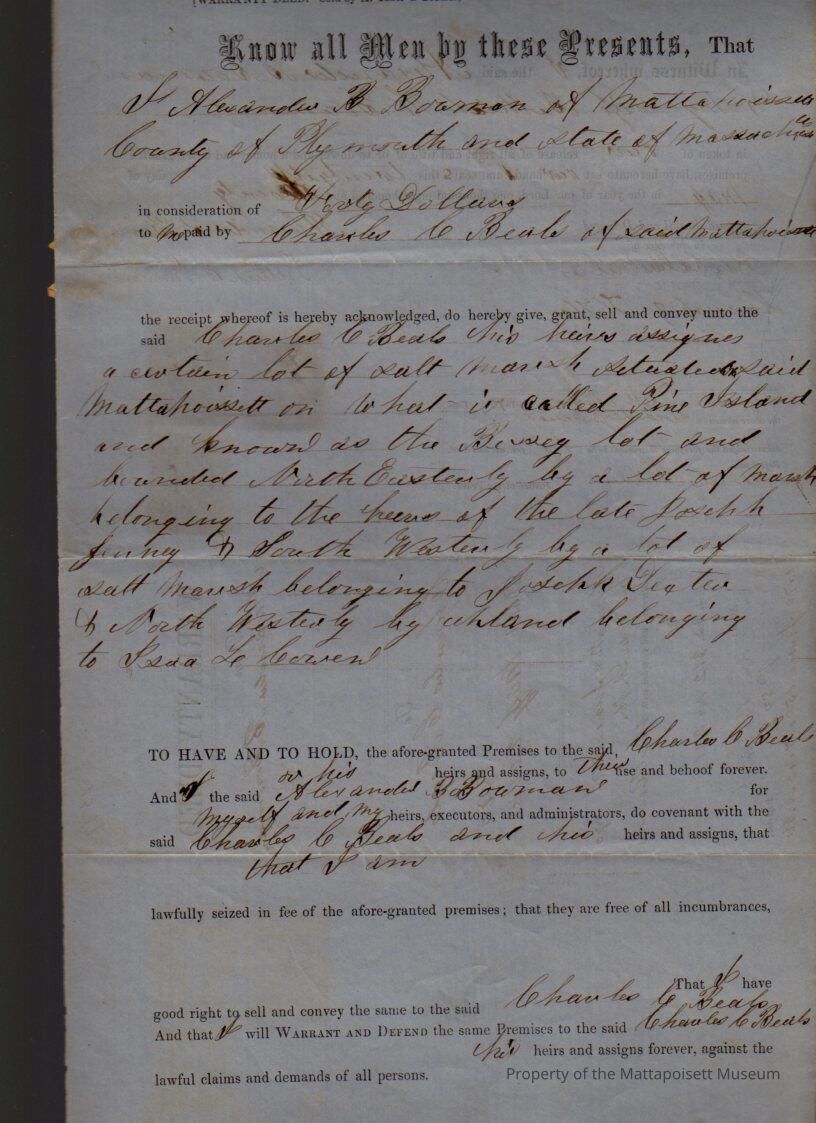 [WARRANTY DEED.
Know all Men by these Presents, That
I Alexander B Bowman of Mattapoissett
County of Plymouth and state of Massachusetts
in consideration of Forty Dollars
to me paid by Charles C Beals of said Mattapoissett
the receipt whereof is hereby acknowledged, do hereby give, grant, sell and convey unto the
said Charles C Beals his heirs assignes
a certain lot of salt marsh situate in said
Mattapoissett on what is called Pine Island
and known as the lot and
bounded North Easterly by a lot of marsh
belonging to the heirs of the late Joseph
Jenney & South Westerly by a lot of
salt marsh belonging to Joseph Dexter
& North Westerly by upland belonging
to L Cowen
TO HAVE AND TO HOLD, the afore-granted Premises to the said Charles C Beals
or his heirs and assigns, to their use and behoof forever.
And I the said Alexander B Bowman for
myself and my heirs, executors, and administrators, do covenant with the
said Charles C Beals and his heirs and assigns, that
that I am
lawfully seized in fee of the afore-granted premises; that they are free of all incumbrances,
That I have
good right to sell and convey the same to the said Charles C Beals
And that I will WARRANT AND DEFEND the same Premises to the said Charles C Beals
his heirs and assigns forever, against the
lawful claims and demands of all persons.
Property of the Mattapoisett Museum